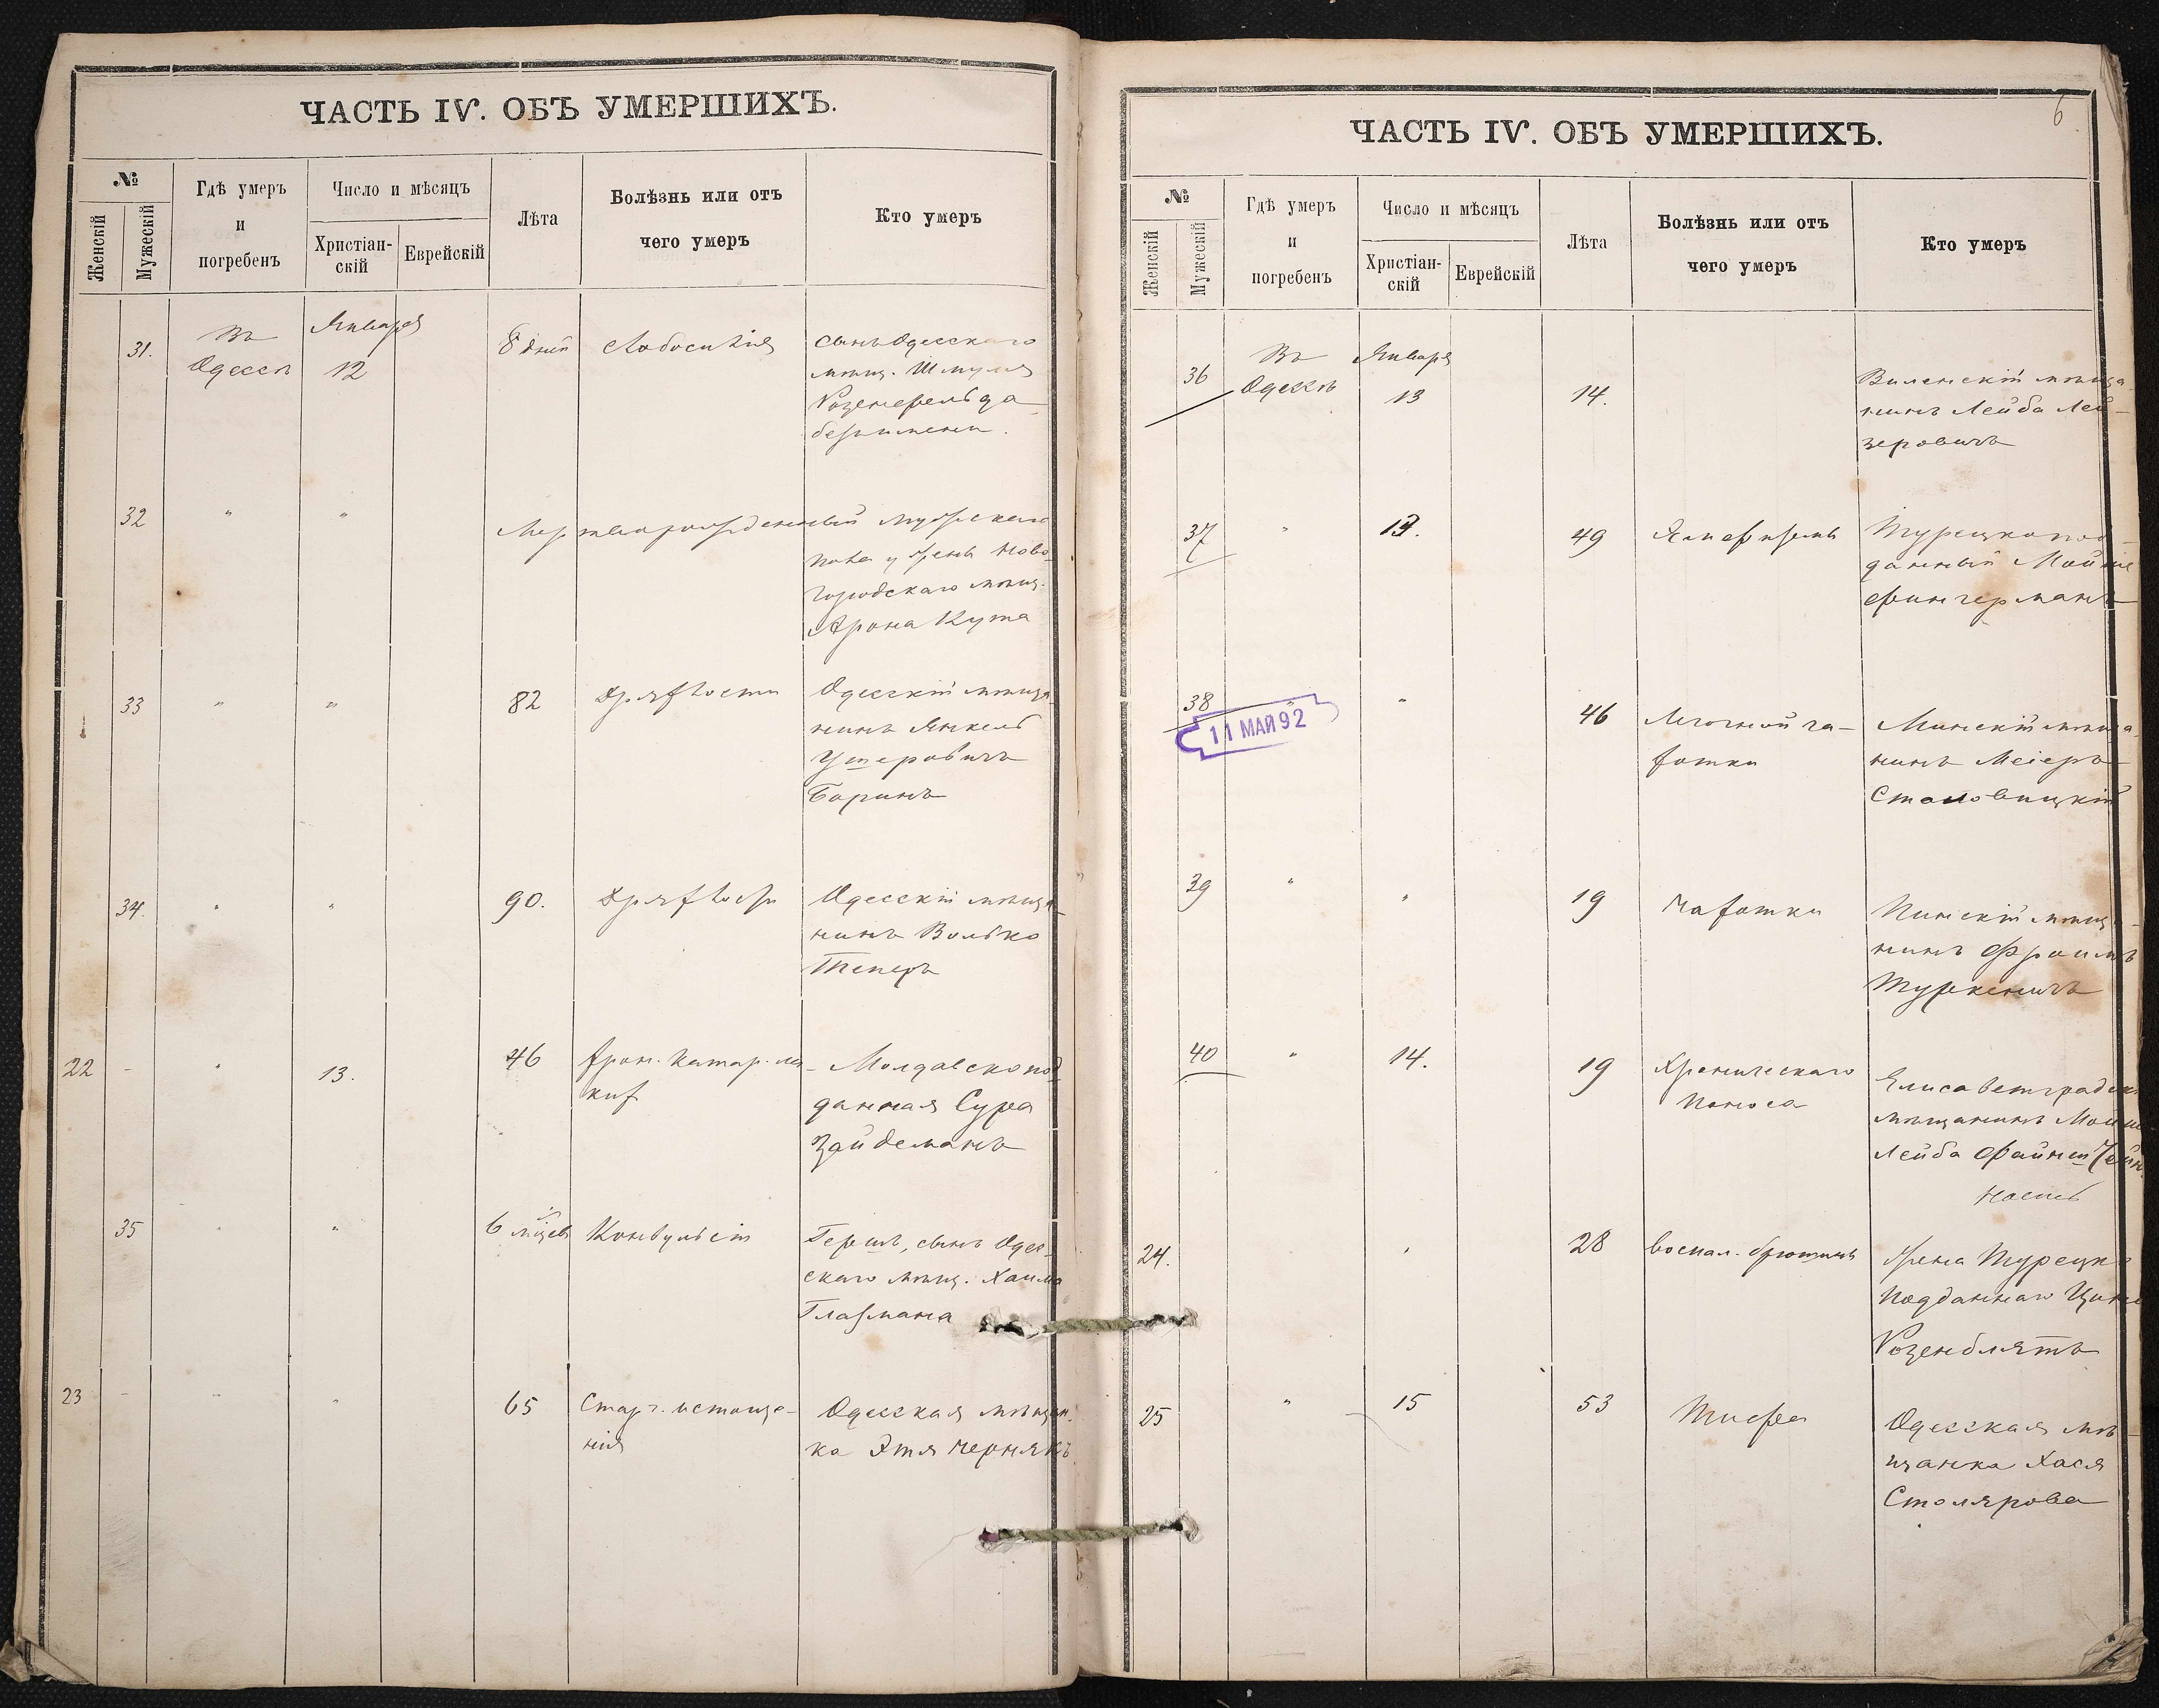 ЧАСТЬ IV. ОБЪ УМЕРШИХЪ.
№
Женскій
Мужескій
Гдѣ умеръ
и
погребенъ
Число и мѣсяцъ
Христіан-
скій
Еврейскій
Лѣта
Болѣзнь или отъ
чего умеръ
Кто умеръ
31.
Въ
Одессѣ
Января
12
8 дней
Слабосилія
сынъ Одесскаго
мѣщ. Шмуля
Розенфельда
безъ имени.
32
"
"
Мертворожденный мужескаго
пола у жены Ново-
городскаго мѣщ.
Арона Кута
33
"
"
82
Дряхлости
Одесскій мѣща-
нинъ Янкель
Ушеровичъ
Баринъ
34.
"
"
90.
Дряхлости
Одесскій мѣща-
нинъ Волько
Теперъ
22
-
"
13.
46
Хрон. катар. ки-
Молдавскопод-
данная Сура
Зайдеманъ
35
"
"
6 мѣсяцевъ
Конвульсіи
Гершъ, сынъ Одес-
скаго мѣщ. Хаима
Глазмана
23
-
"
"
65
Старч. истоще-
нія
Одесская мѣщан-
ка Этя Чернякъ
6.
ЧАСТЬ IV. ОБЪ УМЕРШИХЪ.
№
Женскій
Мужескій
Гдѣ умеръ
и
погребенъ
Число и мѣсяцъ
Христіан-
скій
Еврейскій
Лѣта
Болѣзнь или отъ
чего умеръ
Кто умеръ
36
Въ
Одессѣ
Января
13
14.
Виленскій мѣща-
нинъ Лейба Лей-
зеровичъ
37
"
13.
49
Эмфиземы
Турецкопод-
данный Мойше
Фингерманъ
38
"
"
11 МАЙ 92
46
Легочной ча-
хотки
Минскій мѣща-
нинъ Меіеръ
Столовицкій
39
"
"
19
Чахотки
Пинскій мѣща-
нинъ Фроимъ
Туркеничъ
40
"
14.
19
Хроническаго
поноса
Елисаветградск.
мѣщанинъ Мойше
Лейба
24.
"
28
воспал. брюшины
Жена Турецко
подданнаго
Розенблятъ
25
"
15
53
Тифа
Одесская мѣ-
щанка Хася
Столярова